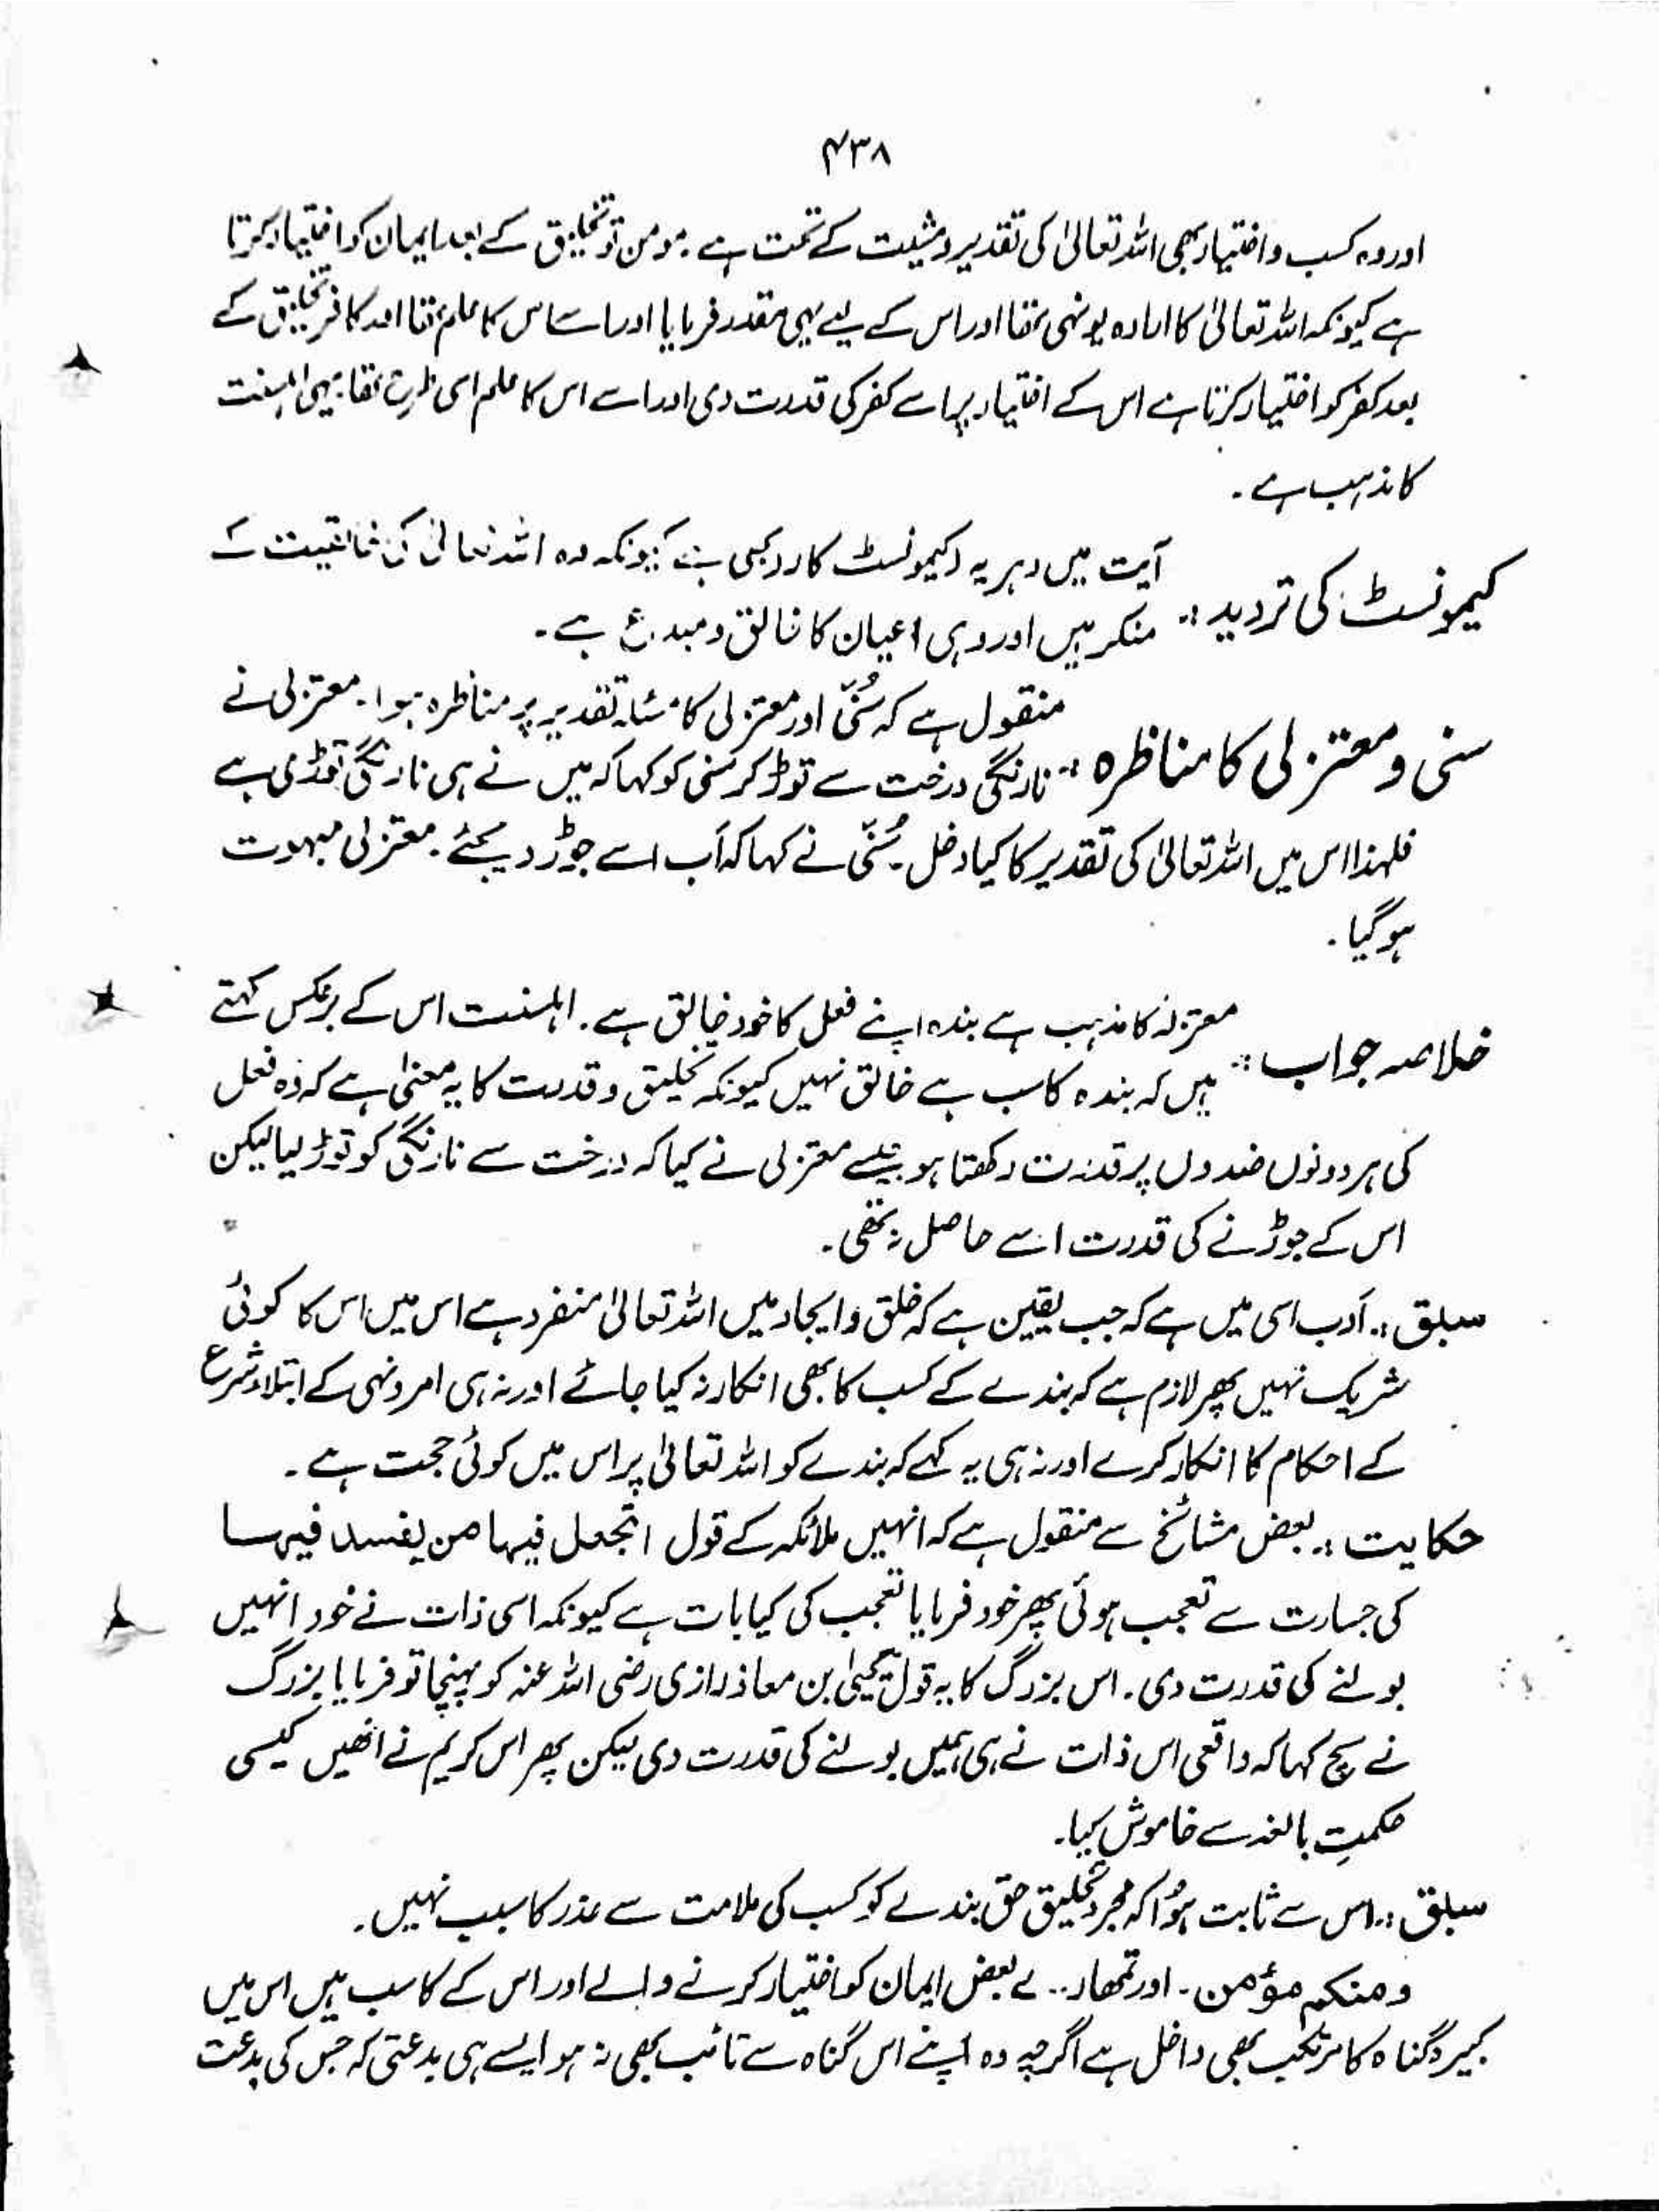 ۴۳۸
اور وہ کسب و اختیار بھی اللہ تعالیٰ کی تقدیر و مشیت کے تحت ہے ۔ مومن تو تخلیق کے بعد ایمان کو اختیار کرتا
ہے کیونکہ اللہ تعالیٰ کا ارادہ یونہی تھا اور اس کے لیے یہی مقدر فرمایا اور اسے اس کا علم تھا اور کافر تخلیق کے
بعد کفر کو اختیار کرتا ہے اس کے اختیار پر اسے کفر کی قدرت دی اور اسے اس کا علم اسی طرح تھا یہی اہلسنت
کا مذہب ہے ۔
کیمونسٹ کی تردید :۔
آیت میں دہریہ و کیمونسٹ کا رد بھی ہے کیونکہ وہ اللہ تعالیٰ کی خالقیت کے
منکر ہیں اور وہی اعیان کا خالق و مبدع ہے ۔
سنی و معتزلی کا مناظرہ :۔
منقول ہے کہ سُنّی اور معتزلی کا مسئلہ تقدیر پر مناظرہ ہوا ۔ معتزلی نے
نارنگی درخت سے توڑ کر سنی کو کہا کہ میں نے ہی نارنگی توڑی ہے
فلہذا اس میں اللہ تعالیٰ کی تقدیر کا کیا دخل ۔ سُنّی نے کہا کہ آپ اسے جوڑ دیجئے ۔ معتزلی مبہوت
ہو گیا ۔
خلاصہ جواب :۔
معتزلہ کا مذہب ہے بندہ اپنے فعل کا خود خالق ہے ۔ اہلسنت اس کے برعکس کہتے
ہیں کہ بندہ کاسب ہے خالق نہیں کیونکہ تخلیق و قدرت کا یہ معنیٰ ہے کہ وہ فعل
کی ہر دونوں ضدوں پر قدرت رکھتا ہو جیسے معتزلی نے کیا کہ درخت سے نارنگی کو توڑ لیا لیکن
اس کے جوڑنے کی قدرت اسے حاصل نہ تھی ۔
سبق :۔ اَدب اسی میں ہے کہ جب یقین ہے کہ خلق و ایجاد میں اللہ تعالیٰ منفرد ہے اس میں اس کا کوئی
شریک نہیں پھر لازم ہے کہ بندے کے کسب کا بھی انکار نہ کیا جائے اور نہ ہی امر و نہی کے ابتلاء شرع
کے احکام کا انکار کرے اور نہ ہی یہ کہے کہ بندے کو اللہ تعالیٰ پر اس میں کوئی حجت ہے ۔
حکایت :۔ بعض مشائخ سے منقول ہے کہ انہیں ملائکہ کے قول اتجعل فیہا من یفسد فیہا
کی جسارت سے تعجب ہوئی پھر خود فرمایا تعجب کی کیا بات ہے کیونکہ اسی ذات نے خود انہیں
بولنے کی قدرت دی ۔ اس بزرگ کا یہ قول یحییٰ بن معاذ رازی رضی اللہ عنہ کو پہنچا تو فرمایا بزرگ
نے سچ کہا کہ واقعی اس ذات نے ہی ہمیں بولنے کی قدرت دی لیکن پھر اس کریم نے انھیں کیسی
حکمتِ بالغہ سے خاموش کیا ۔
سبق :۔ اس سے ثابت ہُوا کہ مجرد تخلیق حق بندے کو کسب کی ملامت سے عذر کا سبب نہیں ۔
ومنکم مؤمن ۔ اور تمھارے بعض ایمان کو اختیار کرنے والے اور اس کے کاسب ہیں اس میں
کبیرہ گناہ کا مرتکب بھی داخل ہے اگرچہ وہ اپنے اس گناہ سے تائب بھی نہ ہو ایسے ہی بدعتی کہ جس کی بدعت